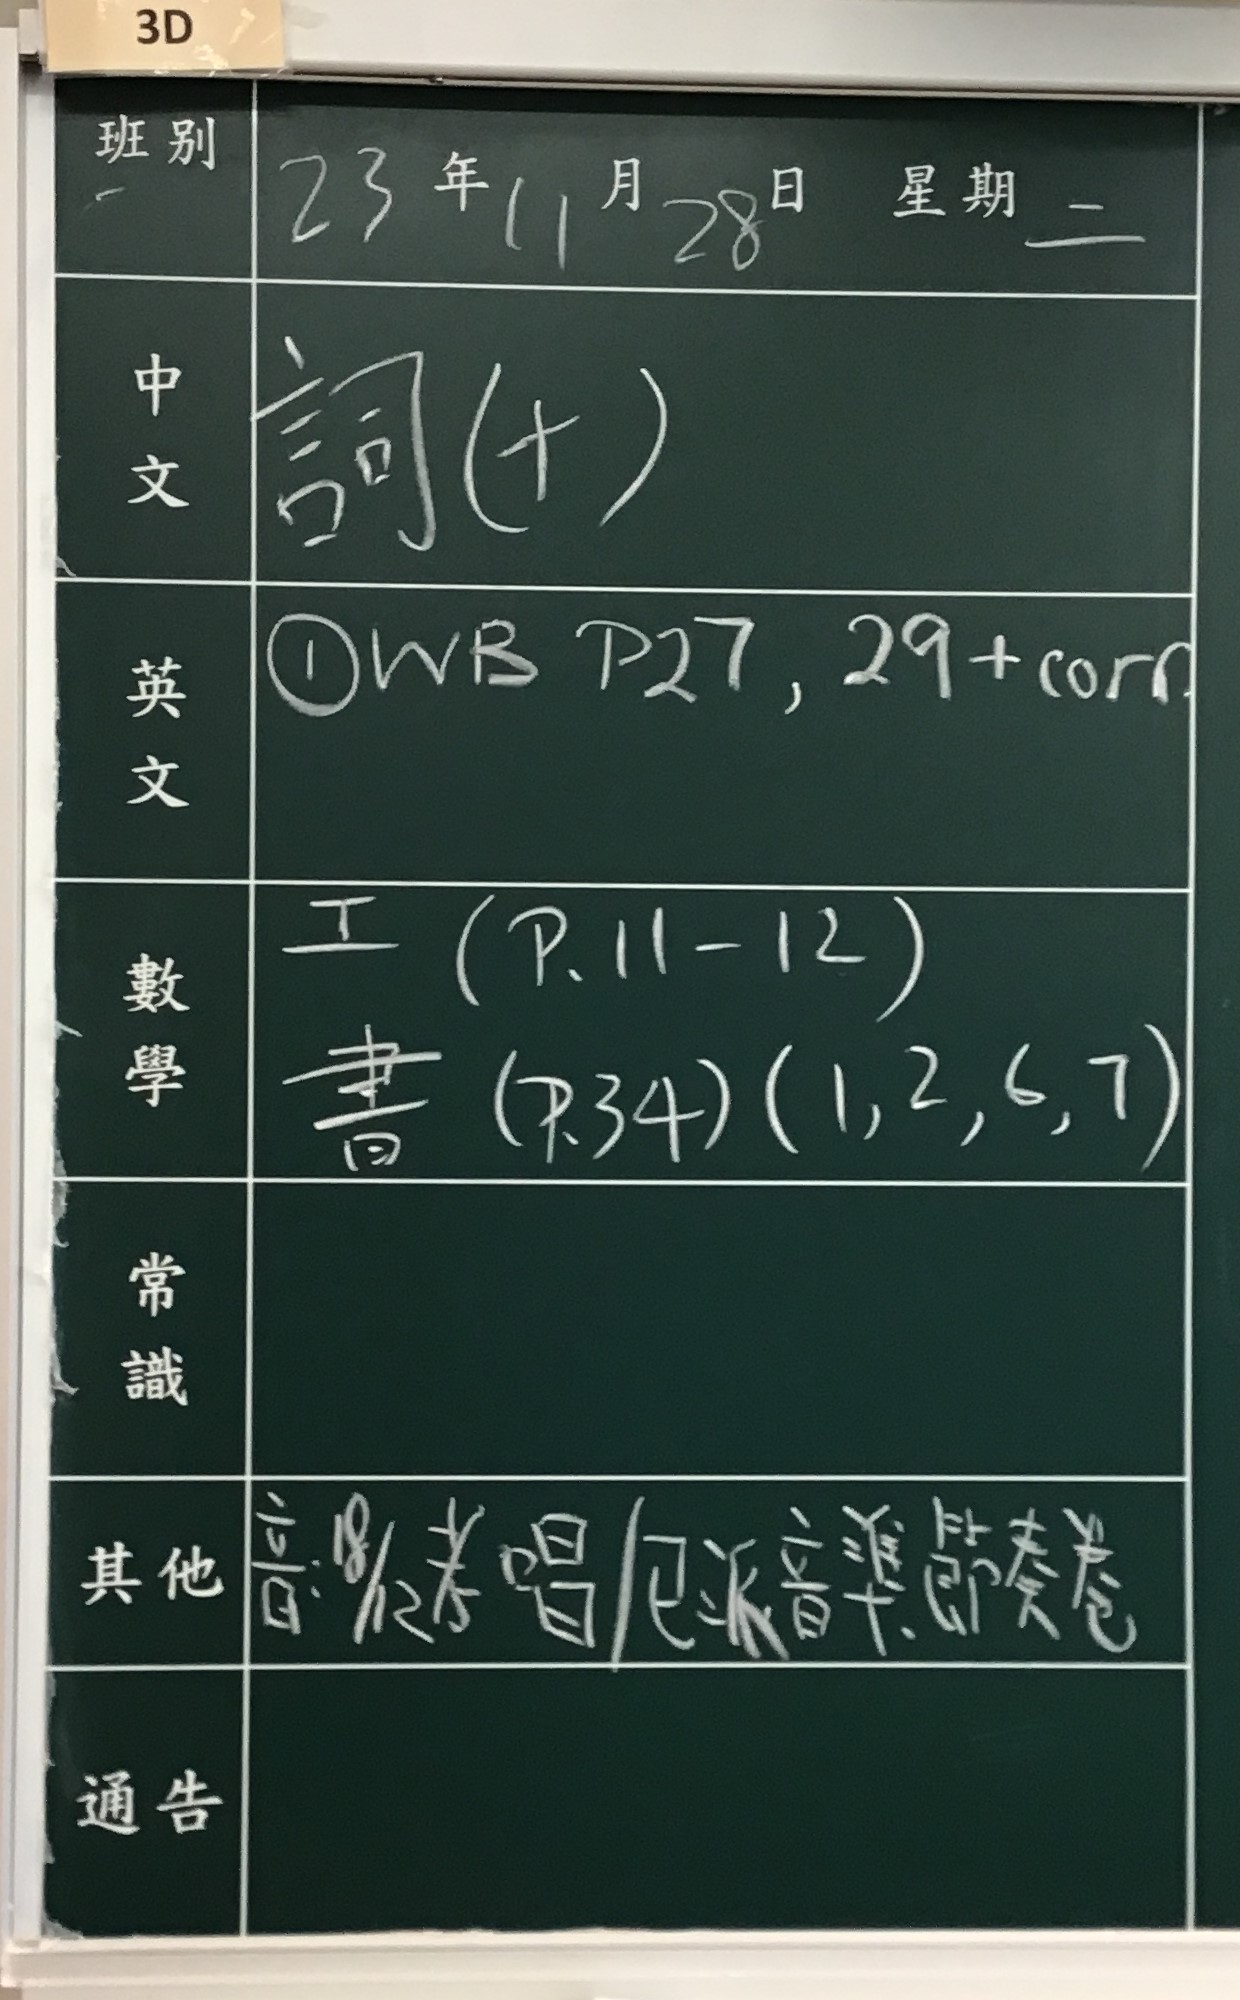 3D
班別 23年11月28日 星期二
中文 詞(十)
英文 ①WB P27, 29 + corr
數學 工 (P.11-12)
書 (P.34) (1, 2, 6, 7)
常識
其他 音: 18/12考唱/已派音準、節奏卷
通告